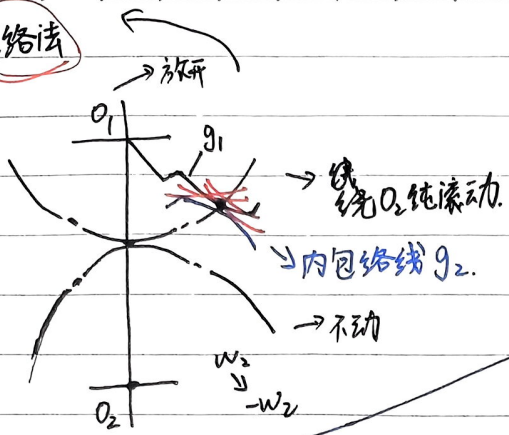 络法
→放开
O₁
g₁
→ 绕O₂纯滚动.
↘内包络线g₂.
→不动
W₂
↓
-W₂
O₂